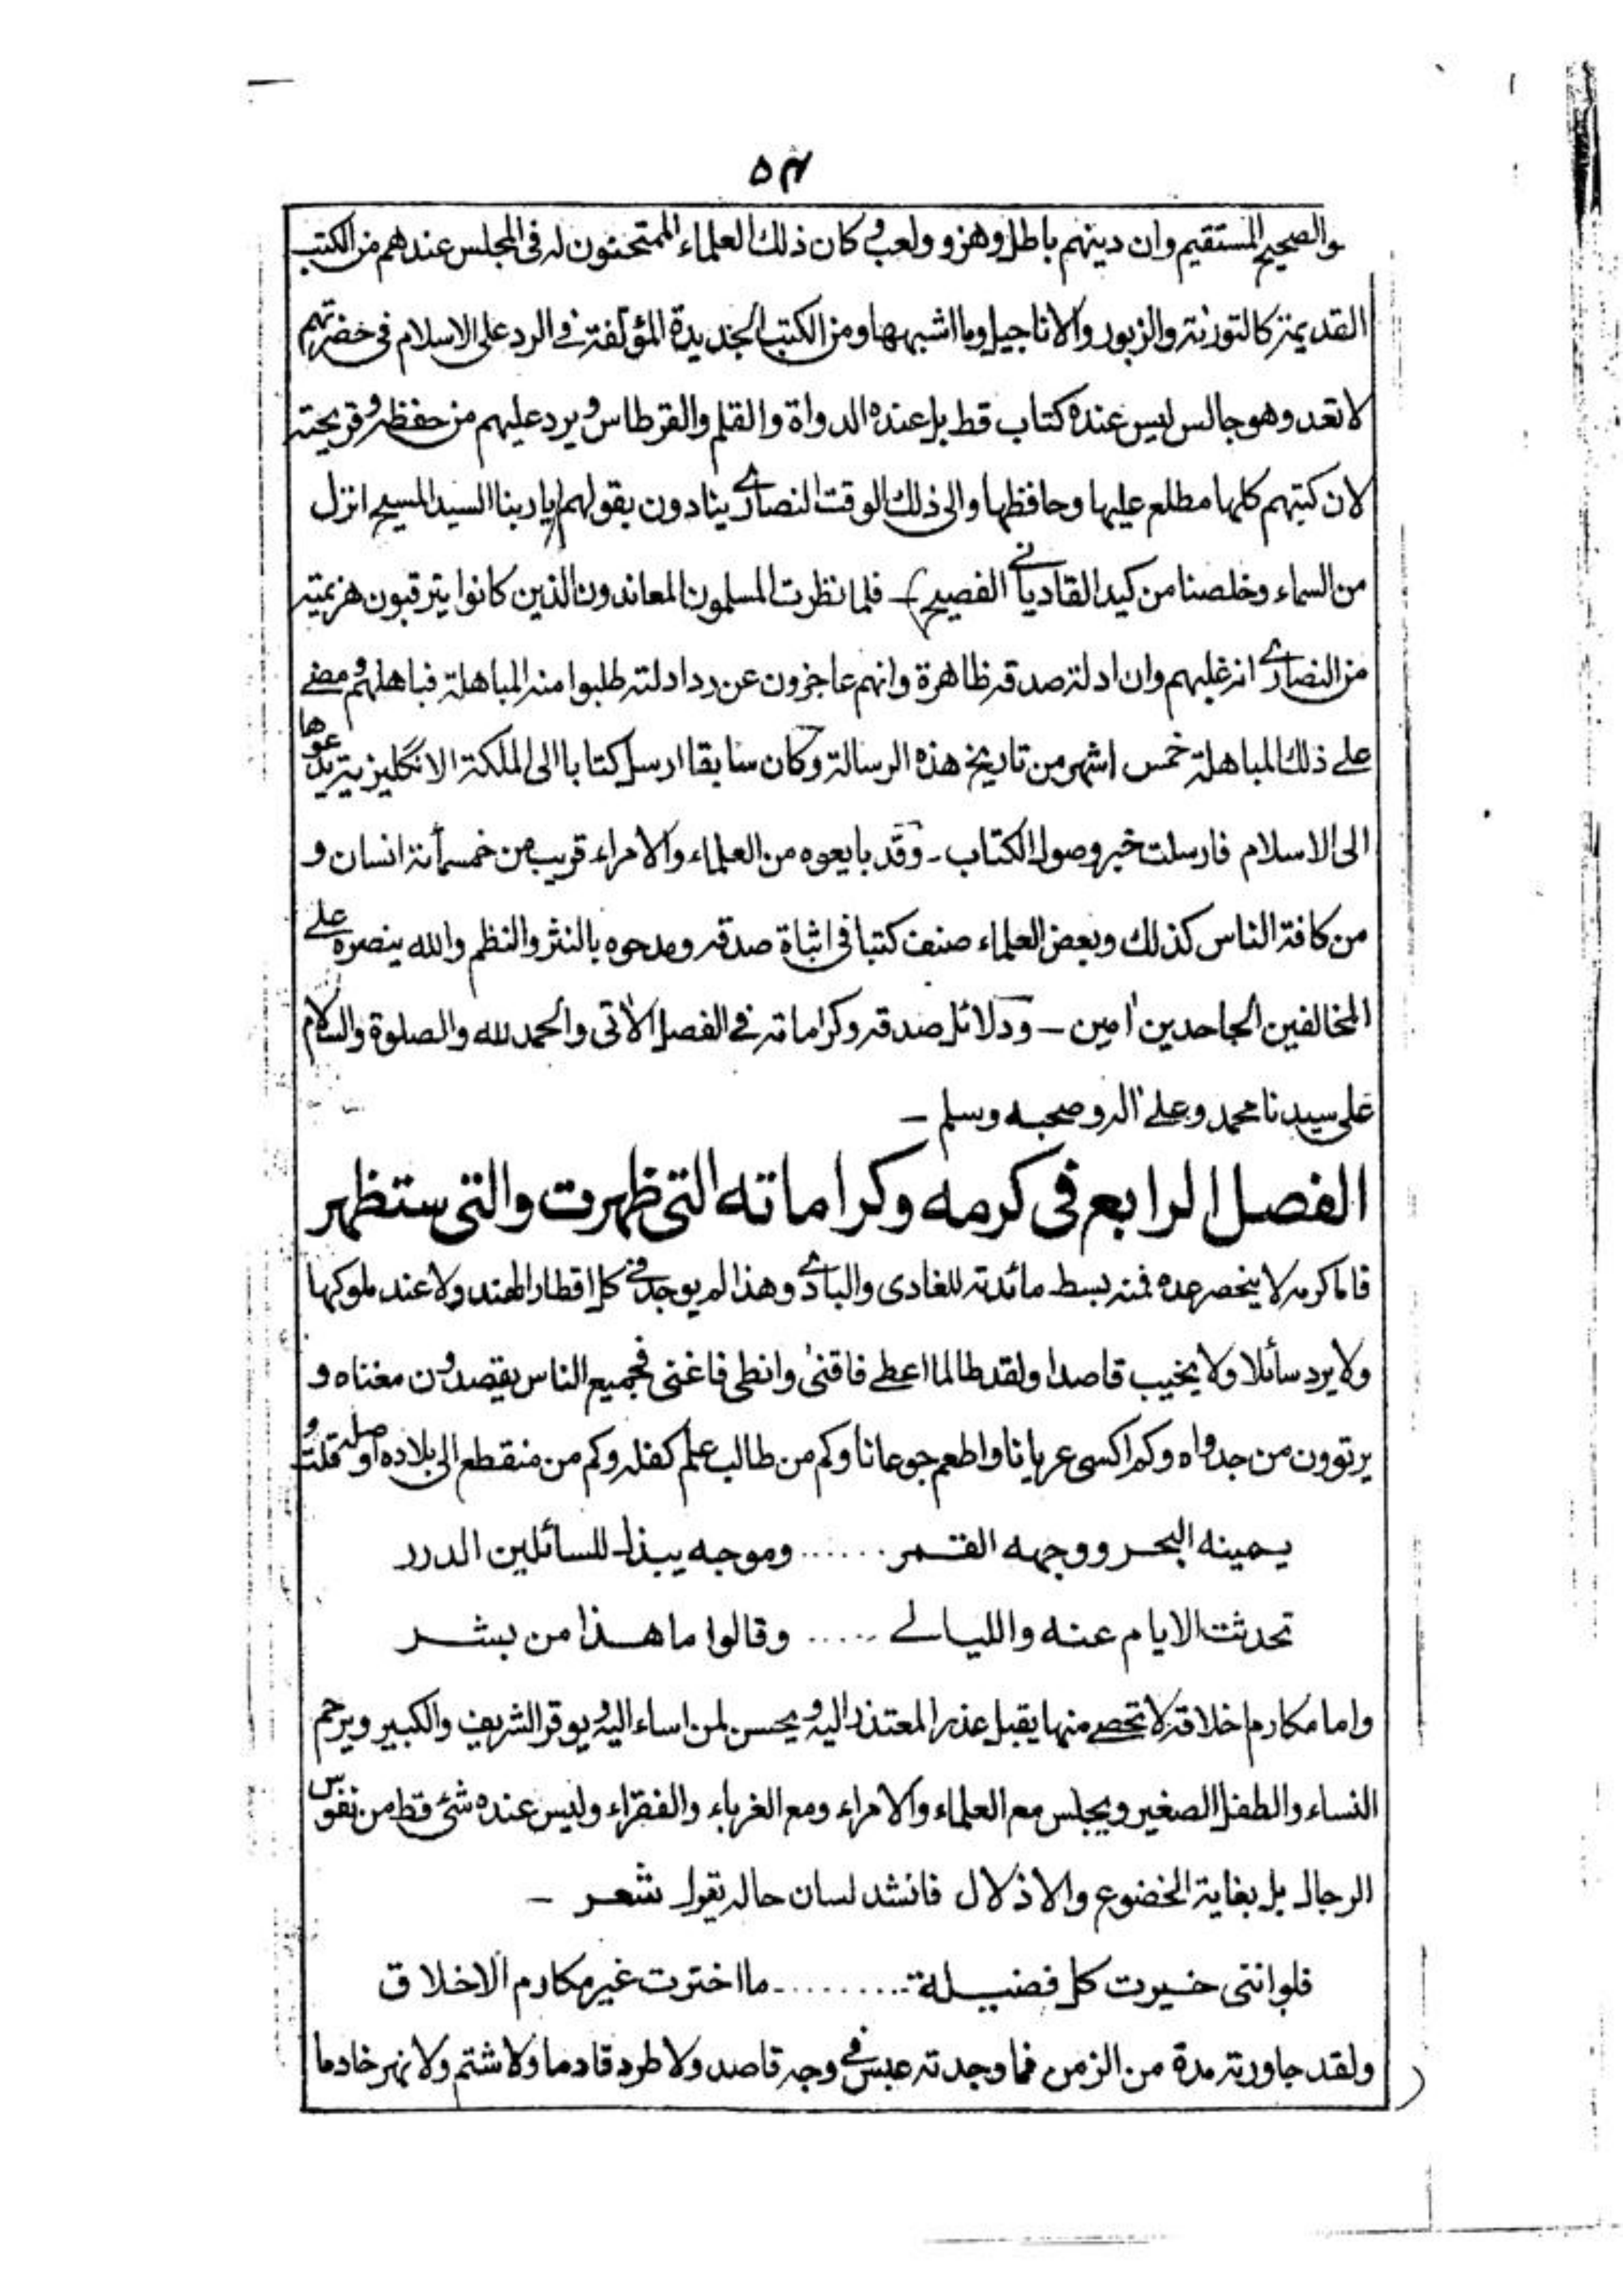 ٥٤
والصحيح المستقيم وان دينهم باطل وهزو ولعب وكان ذلك العلماء الممتحنون له في المجلس عندهم من الكتب
القديمة كالتورنة والزبور والاناجيل وما اشبهها ومن الكتب الجديدة المؤلفة في الرد على الاسلام في حضرتهم
لا تعد وهو جالس ليس عنده كتاب قط بل عنده الدواة والقلم والقرطاس ويرد عليهم من حفظه وقريحته
لان كتبهم كلها مطلع عليها وحافظها والى ذلك الوقت النصارى ينادون بقولهم (يا ربنا السيد المسيح انزل
من السماء وخلصنا من كيد القادياني الفصيح) ـ فلما نظرت المسلمون المعاندون الذين كانوا يترقبون هزيمته
من النصارى انه غلبهم وان ادلة صدقه ظاهرة وانهم عاجزون عن رد ادلته طلبوا منه المباهلة فباهلهم ومضى
على ذلك المباهلة خمس اشهر من تاريخ هذه الرسالة وكان سابقا ارسل كتابا الى الملكة الانگليزية يدعوها
الى الاسلام فارسلت خبر وصول الكتاب ـ وقد بايعوه من العلماء والامراء قريب من خمسمأئة انسان و
من كافة الناس كذلك وبعض العلماء صنف كتبا في اثباة صدقه ومدحوه بالنثر والنظم والله ينصره على
المخالفين الجاحدين اٰمين ـ ودلائل صدقه وكراماته في الفصل الاٰتى والحمد لله والصلوة والسلام
على سيدنا محمد وعلى اٰله وصحبه وسلم ـ
الفصل الرابع في كرمه وكراماته التي ظهرت والتي ستظهر
فاما كرمه لا ينحصر عده فمنه بسط مائدته للغادى والبادى وهذا لم يوجد في كل اقطار الهند ولا عند ملوكها
ولا يرد سأئلا ولا يخيب قاصدا ولقد طالما اعطى فاقنىٰ وانطى فاغنى فجميع الناس يقصدون مغناه و
يرتوون من جدواه وكم اكسى عريانا واطعم جوعانا وكم من طالب علم كفله وكم من منقطع الى بلاده اوصله وقلت
يمينه البحر ووجهه القمر ...... وموجه يبذل للسائلين الدرر
تحدثت الايام عنه والليالى ..... وقالوا ما هذا من بشر
واما مكارم اخلاقه لا تحصى منها يقبل عذر المعتذر اليه ويحسن لمن اساء اليه ويوقر الشريف والكبير ويرحم
النساء والطفل الصغير ويجلس مع العلماء والامراء ومع الغرباء والفقراء وليس عنده شئ قط من نفوس
الرجال بل بغاية الخضوع والاذلال فانشد لسان حاله يقول شعر ـ
فلو اننى خيرت كل فضيلة ......... ما اخترت غير مكارم الاخلاق
ولقد جاورته مدة من الزمن فما وجدته عبس في وجه قاصد ولا طرد قادما ولا شتم ولا نهر خادما